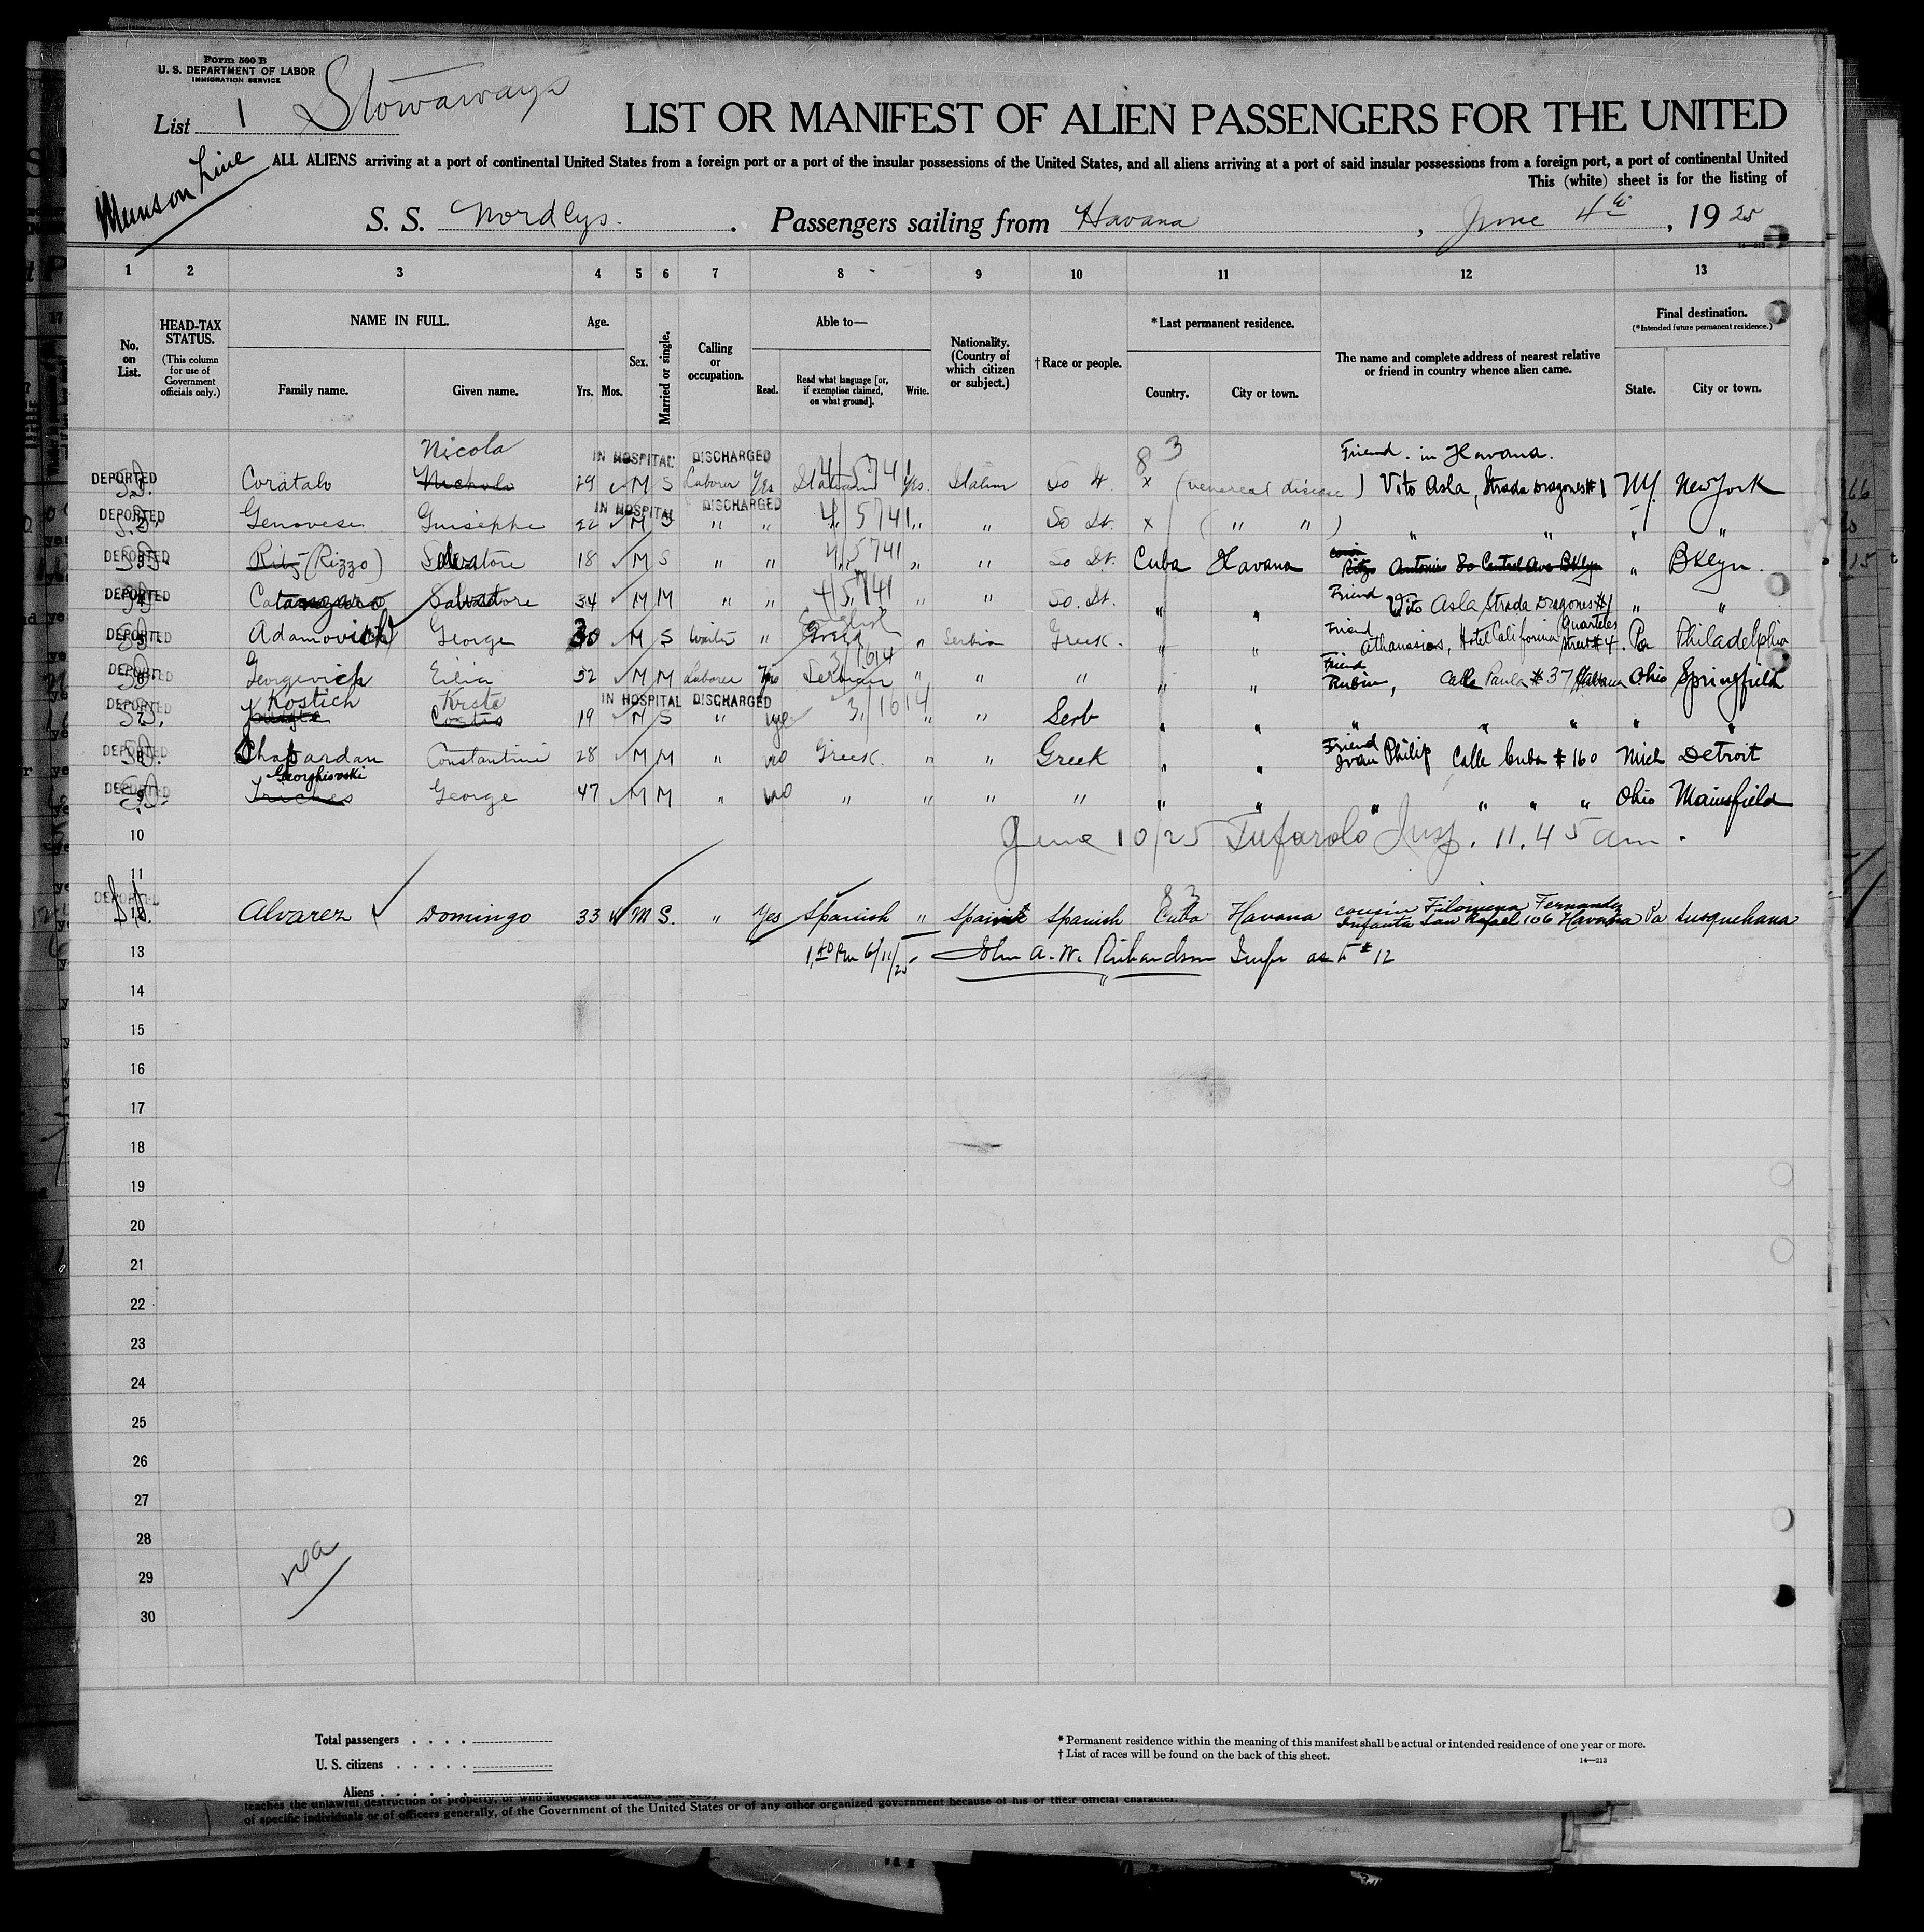 Form 500 B
U. S. DEPARTMENT OF LABOR
IMMIGRATION SERVICE
List 1 Stowaways
LIST OR MANIFEST OF ALIEN PASSENGERS FOR THE UNITED
Munson Line
ALL ALIENS arriving at a port of continental United States from a foreign port or a port of the insular possessions of the United States, and all aliens arriving at a port of said insular possessions from a foreign port, a port of continental United
This (white) sheet is for the listing of
S. S. Nordlys. Passengers sailing from Havana, June 4th, 1925
14-213
1 2 3 4 5 6 7 8 9 10 11 12 13
No. on List.
HEAD-TAX STATUS.
(This column for use of Government officials only.)
NAME IN FULL.
Family name. Given name.
Age.
Yrs. Mos.
Sex.
Married or single.
Calling or occupation.
Able to—
Read. Read what language [or, if exemption claimed, on what ground]. Write.
Nationality. (Country of which citizen or subject.)
† Race or people.
*Last permanent residence.
Country. City or town.
The name and complete address of nearest relative or friend in country whence alien came.
Final destination.
(*Intended future permanent residence.)
State. City or town.
Nicola IN HOSPITAL DISCHARGED 83 Friend. in Havana.
DEPORTED Coratalo Nicholo 29 M S Laborer Yes Italian Yes. Italian So It. x (venereal disease) Vito Asla, Strada Dragones #1 NY. New York
IN HOSPITAL DISCHARGED
DEPORTED Genovese Guisephe 22 M S " " 4/5741 " " So It. x ( " " ) " " " "
DEPORTED Ritz (Rizzo) Salvatore 18 M S " " 4/5741 " " So It. Cuba Havana Antonio 80 Central Ave Bklyn " BKlyn.
DEPORTED Catanzaro Salvatore 34 M M " " 4/5741 " " So. It. " " Friend Vito Asla Strada Dragones #1 " "
DEPORTED Adamovich George 30 M S Waiter " English Greek " Serbian Greek. " " Friend Athanasios, Hotel California Quarteles Street #4. Pa Philadelphia
DEPORTED Georgevich Eilia 32 M M Laborer Yes 3/1614 Serbian " " " " " Friend Rubin, Calle Paula #37 Habana Ohio Springfield
Kostich Krsto IN HOSPITAL DISCHARGED
DEPORTED Costas 19 M S " 3/1614 " " Serb " " " " " " "
DEPORTED Chapardan Constantine 28 M M " no Greek. " " Greek " " Friend Ivan Philip Calle Cuba #160 Mich Detroit
Georghievski
DEPORTED Triches George 47 M M " no " " " " " " " " " " Ohio Mainsfield
10 June 10/25 Tufarolo Insp. 11.45 am.
11
DEPORTED Alvarez Domingo 33 M S. " Yes Spanish " Spanish Spanish 83 Cuba Havana cousin Filomena Fernandez Infanta San Rafael 106 Havana Pa Susquehana
13 6/11/25 John A. W. Richardson Insp as to #12
14
15
16
17
18
19
20
21
22
23
24
25
26
27
28
29
30
Total passengers
U. S. citizens
Aliens
* Permanent residence within the meaning of this manifest shall be actual or intended residence of one year or more.
† List of races will be found on the back of this sheet.
14—213
teaches the unlawful destruction of property, or who advocates or teaches the
of specific individuals or of officers generally, of the Government of the United States or of any other organized government because of his or their official character.